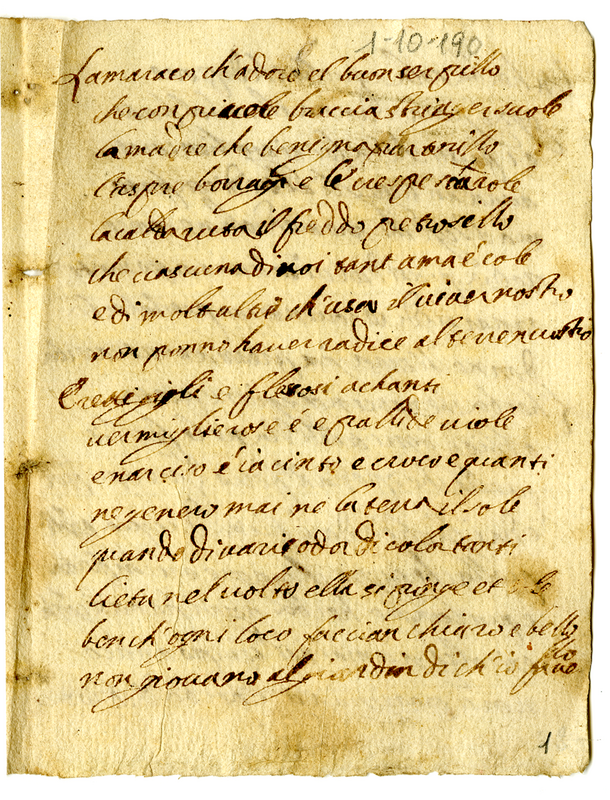 1-10-190
Lamaraco ch'adoro el buon serpillo
che con piccole braccia stringer suole
la madre che benigna partorillo
l'aspre borragi e le crespe
la calda ruta il freddo petrosillo
che ciascuna di noi tant ama é cole
e di molt altre ch'usa il viver nostro
non ponno haver radice al terren vostro
Creschi gigli e flessosi achanti
vermiglie rose é e pallide viole
e narciso é iacinto e croco e quanti
ne genero mai ne la terra il sole
quando di vari odor di color tanti
lieta nel volto ella si pinge et
ben ch'ogni loco faccian chiaro e bello
non giovano al giardin di ch'io
1